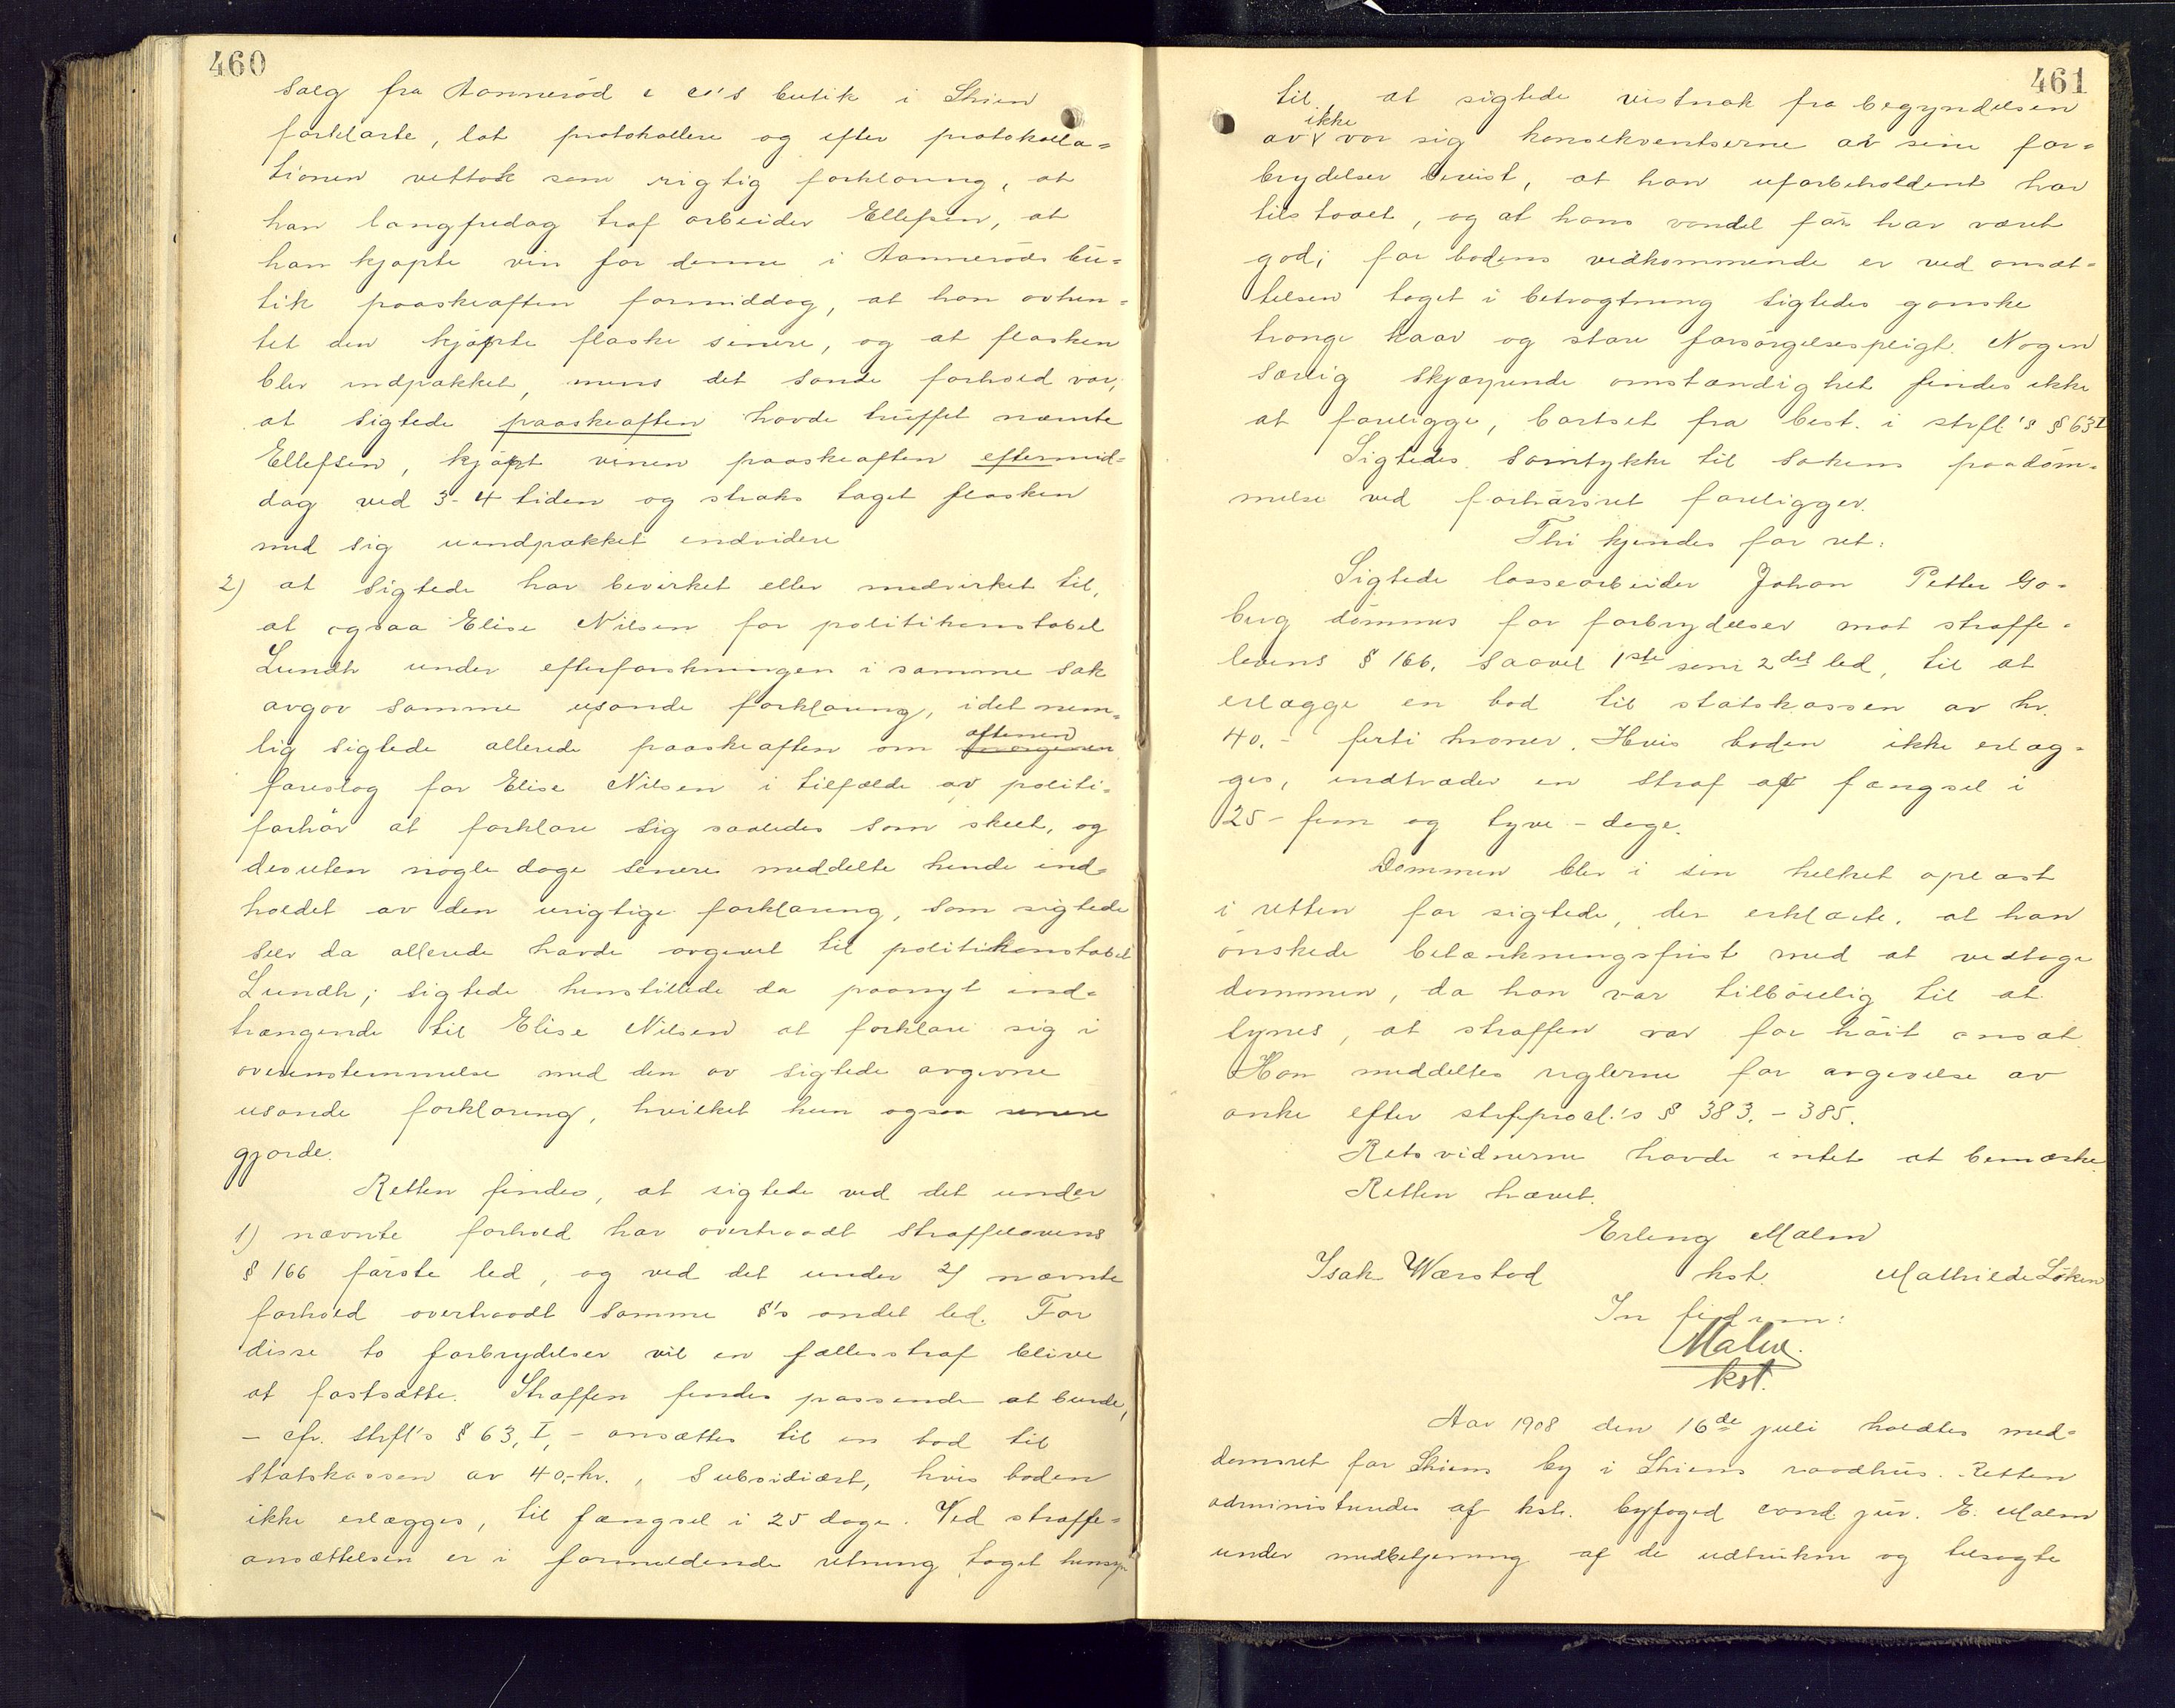 460
salg fra Aannerød & co's butik i Skien
forklarte, lot protokollere og efter protokolla=
tionen vettok som rigtig forklaring, at
han langfredag traf arbeider Ellefsen, at
han kjøpte vin for denne i Aannerøds bu=
tik paaskeaften formiddag, at han avhen=
tet den kjøpte flaske senere, og at flasken
blev indpakket, mens det sande forhold var,
at sigtede paaskeaften havde truffet nævnte
Ellefsen, kjøpt vinen paaskeaften eftermid=
dag ved 3-4 tiden og straks taget flasken
med sig uindpakket endvidere
2) at sigtede har bevirket eller medvirket til,
at ogsaa Elise Nilsen for politikonstabel
Lundh under efterforskningen i samme sak
avgav samme usande forklaring, idet nem=
lig sigtede allerede paaskeaften om aftenen morgenen
foreslog for Elise Nilsen i tilfælde av politi=
forhør at forklare sig saaledes som skeet, og
desuten nogle dage senere meddelte hende ind=
holdet av den urigtige forklaring, som sigtede
selv da allerede havde avgivet til politikonstabel
Lundh; sigtede henstillede da paanyt ind=
trængende til Elise Nilsen at forklare sig i
overensstemmelse med den av sigtede avgivne
usande forklaring, hvilket hun ogsaa senere
gjorde.
Retten findes, at sigtede ved det under
1) nævnte forhold har overtraadt straffelovens
§ 166 første led, og ved det under 2) nævnte
forhold overtraadt samme §'s andet led. For
disse to forbrydelser vil en fællesstraf blive
at fastsætte. Straffen findes passende at burde,
- cfr. strfl's § 63, I, - ansættes til en bod til
statskassen av 40,-kr., subsidiært, hvis boden
ikke erlægges, til fængsel i 25 dage. Ved straffe=
ansættelsen er i formildende retning taget hensyn
461
til, at sigtede vistnok fra begyndelsen
av ikke var sig konsekventserne av sine for=
brydelser bevist, at han uforbeholdent har
tilstaaet, og at hans vandel før har været
god; for bodens vedkommende er ved ansæt=
telsen taget i betragtning sigtedes ganske
trange kaar og store forsørgelsespligt. Nogen
særlig skjærpende omstændighet findes ikke
at foreligge, bortset fra best. i strfl.'s § 63 I
Sigtedes samtykke til sakens paadøm=
melse ved forhørsret foreligger.
Thi kjendes for ret:
Sigtede lossearbeider Johan Petter Go=
berg dømmes for forbrydelser mot straffe=
lovens § 166, saavel 1ste som 2det led, til at
erlægge en bod til statskassen av kr.
40.- firti kroner. Hvis boden ikke erlæg=
ges, indtræder en straf af fængsel i
25 - fem og tyve - dage.
Dommen blev i sin helhet oplæst
i retten for sigtede, der erklærte, at han
ønskede betænkningsfrist med at vedtage
dommen, da han var tilbøielig til at
synes, at straffen var for høit ansat.
Han meddeltes reglerne for avgivelse av
anke efter strfprocl.'s § 383. - 385.
Retsvidnerne havde intet at bemærke
Retten hævet.
Erling Malm
Isak Wærstad kst. Mathilde Løken
In fidem:
Malm.
kst.
Aar 1908 den 16de juli holdtes med=
domsret for Skiens by i Skiens raadhus. Retten
administreredes af kst. byfoged cand. jur. E. Malm
under medbetjening af de udtrukne og tilsagte